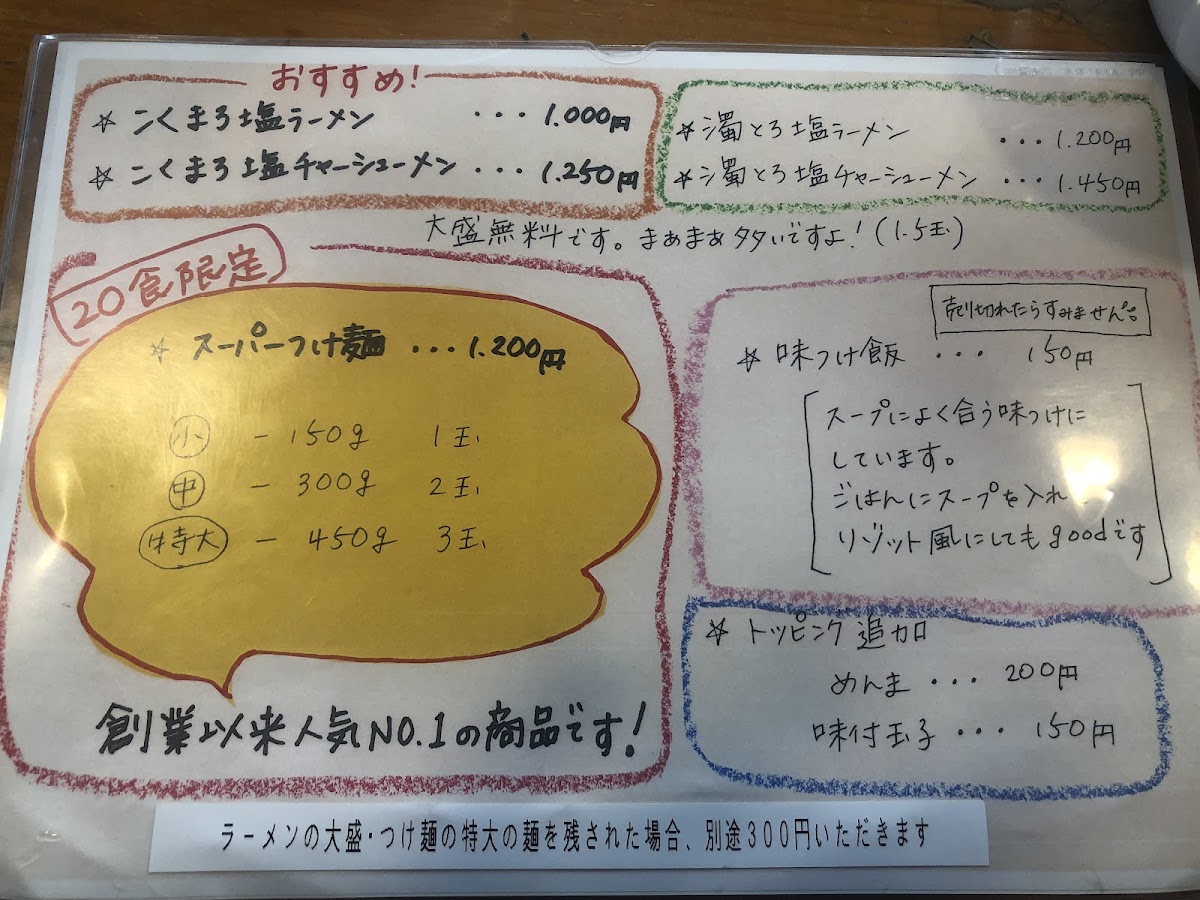 おすすめ!
☆ こくまろ塩ラーメン ・・・ 1.000円
☆ こくまろ塩チャーシューメン ・・・ 1.250円
☆ 濁とろ塩ラーメン ・・・ 1.200円
☆ 濁とろ塩チャーシューメン ・・・ 1.450円
大盛無料です。まあまあ多いですよ!(1.5玉)
20食限定
☆ スーパーつけ麺 ・・・ 1.200円
小 - 150g 1玉
中 - 300g 2玉
特大 - 450g 3玉
創業以来人気NO.1の商品です!
売り切れたらすみません。
☆ 味つけ飯 ・・・ 150円
スープによく合う味つけに
しています。
ごはんにスープを入れ
リゾット風にしてもgoodです
☆ トッピング追加
めんま ・・・ 200円
味付玉子 ・・・ 150円
ラーメンの大盛・つけ麺の特大の麺を残された場合、別途300円いただきます